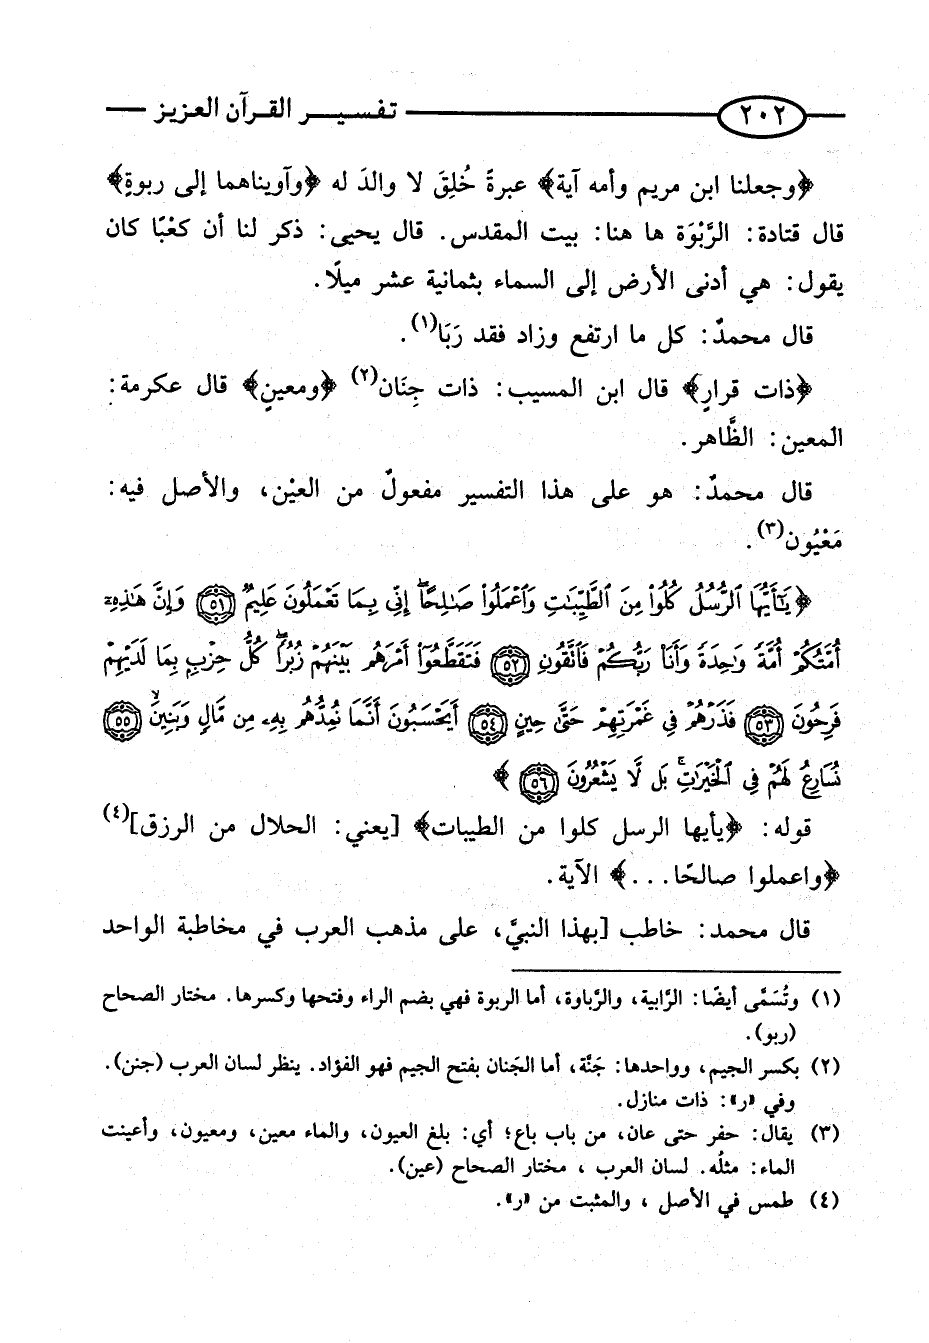 ٢٠٢ تفسير القرآن العزيز
﴿وجعلنا ابن مريم وأمه آية﴾ عبرةً خُلِقَ لا والدَ له ﴿وآويناهما إلى ربوةٍ﴾
قال قتادة: الرَّبْوَة ها هنا: بيت المقدس. قال يحيى: ذكر لنا أن كعْبًا كان
يقول: هي أدنى الأرض إلى السماء بثمانية عشر ميلًا.
قال محمدٌ: كل ما ارتفع وزاد فقد رَبَا(١).
﴿ذات قرارٍ﴾ قال ابن المسيب: ذات جِنَان(٢) ﴿ومعينٍ﴾ قال عكرمة:
المعين: الظَّاهر.
قال محمدٌ: هو على هذا التفسير مفعولٌ من العيْن، والأصل فيه:
مَعْيُون(٣).
﴿يَٰٓأَيُّهَا ٱلرُّسُلُ كُلُوا۟ مِنَ ٱلطَّيِّبَٰتِ وَٱعْمَلُوا۟ صَٰلِحًا ۖ إِنِّى بِمَا تَعْمَلُونَ عَلِيمٌ ٥١ وَإِنَّ هَٰذِهِۦٓ
أُمَّتُكُمْ أُمَّةً وَٰحِدَةً وَأَنَا۠ رَبُّكُمْ فَٱتَّقُونِ ٥٢ فَتَقَطَّعُوٓا۟ أَمْرَهُم بَيْنَهُمْ زُبُرًا ۖ كُلُّ حِزْبٍۭ بِمَا لَدَيْهِمْ
فَرِحُونَ ٥٣ فَذَرْهُمْ فِى غَمْرَتِهِمْ حَتَّىٰ حِينٍ ٥٤ أَيَحْسَبُونَ أَنَّمَا نُمِدُّهُم بِهِۦ مِن مَّالٍ وَبَنِينَ ۙ ٥٥
نُسَارِعُ لَهُمْ فِى ٱلْخَيْرَٰتِ ۚ بَل لَّا يَشْعُرُونَ ٥٦﴾
قوله: ﴿يأيها الرسل كلوا من الطيبات﴾ [يعني: الحلال من الرزق](٤)
﴿واعملوا صالحًا...﴾ الآية.
قال محمد: خاطب [بهذا النبيَّ، على مذهب العرب في مخاطبة الواحد
(١) وتُسَمَّى أيضًا: الرَّابية، والرَّباوة، أما الربوة فهي بضم الراء وفتحها وكسرها. مختار الصحاح
(ربو).
(٢) بكسر الجيم، وواحدها: جَنَّة، أما الجَنان بفتح الجيم فهو الفؤاد. ينظر لسان العرب (جنن).
وفي «ر»: ذات منازل.
(٣) يقال: حفر حتى عان، من باب باع؛ أي: بلغ العيون، والماء معين، ومعيون، وأعينت
الماء: مثلُه. لسان العرب، مختار الصحاح (عين).
(٤) طمس في الأصل، والمثبت من «ر».